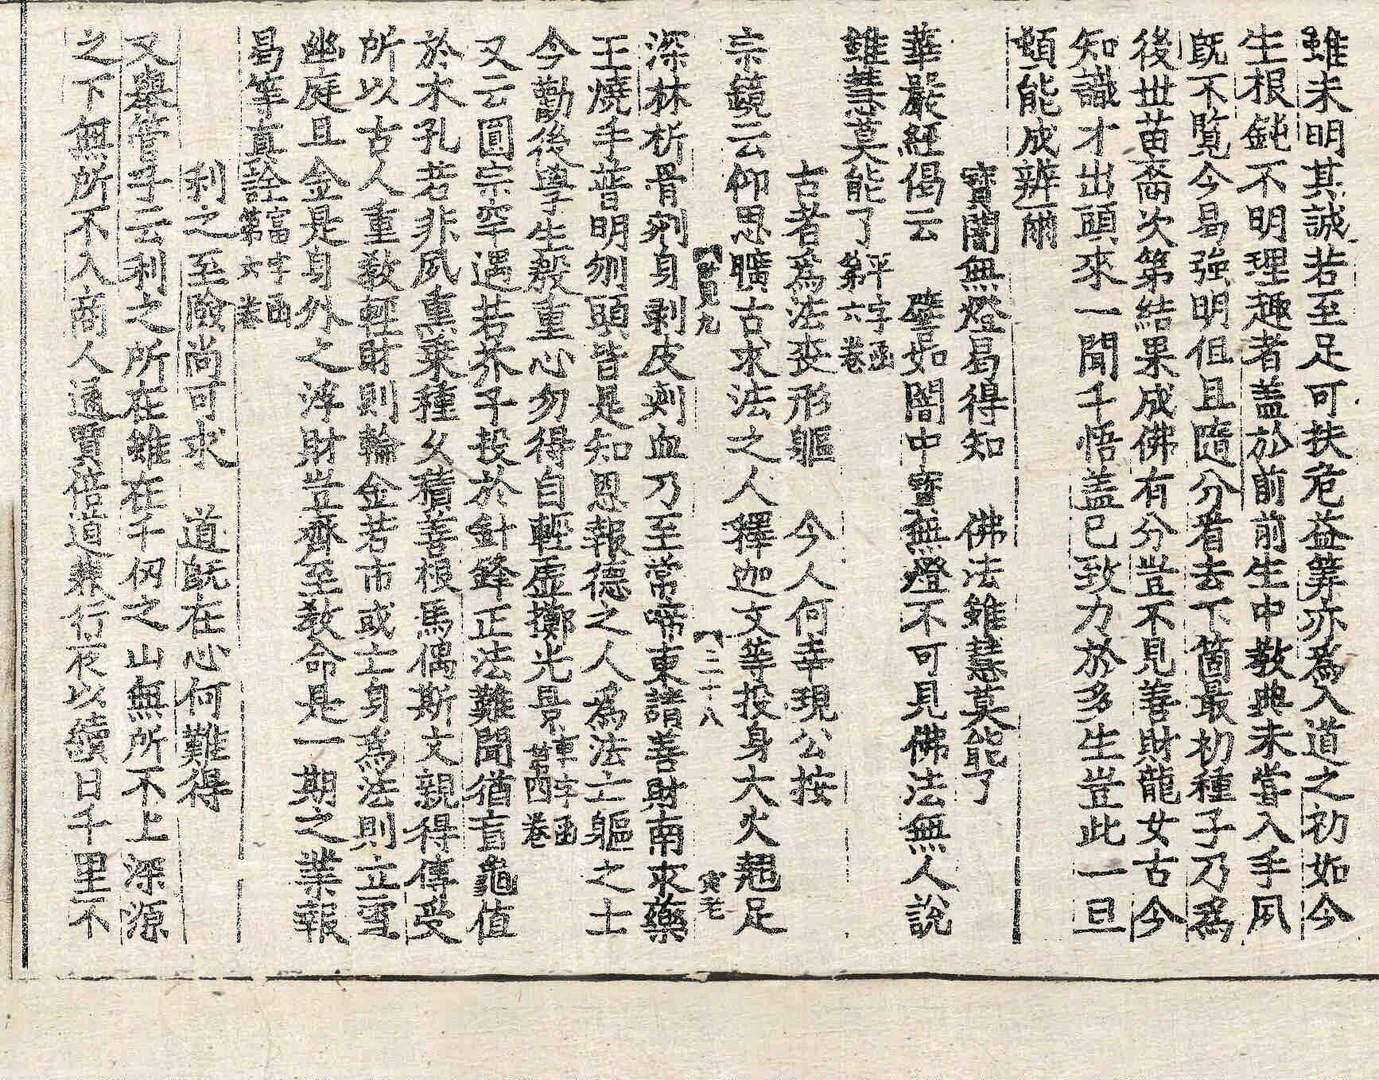 雖未明其誠若至足可扶危益筭亦爲入道之初如今
生根鈍不明理趣者盖於前前生中教典未甞入手夙
旣不覽今曷強明但且隨分看去下箇最初種子乃爲
後世苗裔次第結果成佛有分豈不見善財龍女古今
知識才出頭來一聞千悟盖已致力於多生豈此一旦
頓能成辨爾
寶闇無燈曷得知　佛法雖慧莫能了
華嚴經偈云　譬如闇中寶無燈不可見佛法無人說
雖慧莫能了平字函第六卷
古者爲法喪形軀　今人何幸現公按
宗鏡云仰思曠古求法之人釋迦文等投身大火翹足
深林析骨剜身剥皮刺血乃至常啼東請善財南求藥
王燒手普明刎頭皆是知恩報德之人爲法亡軀之士
今勸後學生殷重心勿得自輕虛擲光景車字函第四卷
又云圓宗罕遇若芥子投於針鋒正法難聞猶盲龜值
於木孔若非夙熏乘種久積善根焉偶斯文親得傳受
所以古人重教輕財則輪金若市或士身爲法則立雪
幽庭且金是身外之浮財豈齊至教命是一期之業報
曷等真詮富字函第六卷
利之至險尚可求　道旣在心何難得
又舉管子云利之所在雖在千仞之山無所不上深源
之下無所不入商人通賈倍道兼行夜以續日千里不